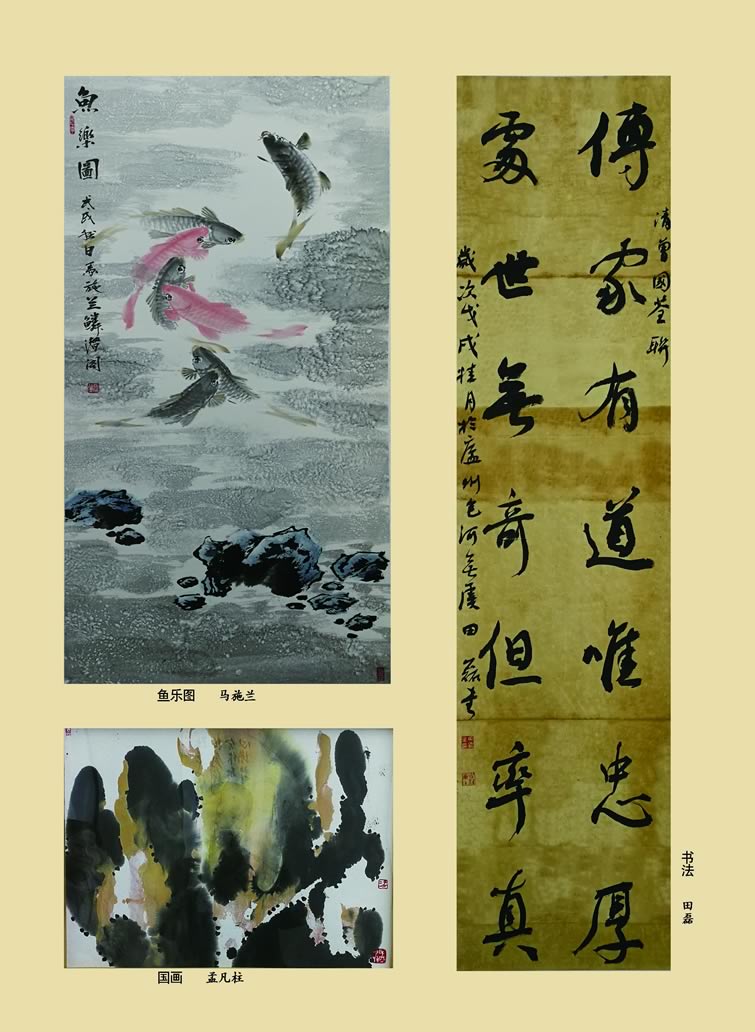 魚樂圖
戊戌秋日馬施兰
鱼乐图 马施兰
国画 孟凡柱
清曾國荃聯
傅家有道唯忠厚
處世無奇但率真
歲次戊戌桂月於廬州包河
田磊书
书法 田磊